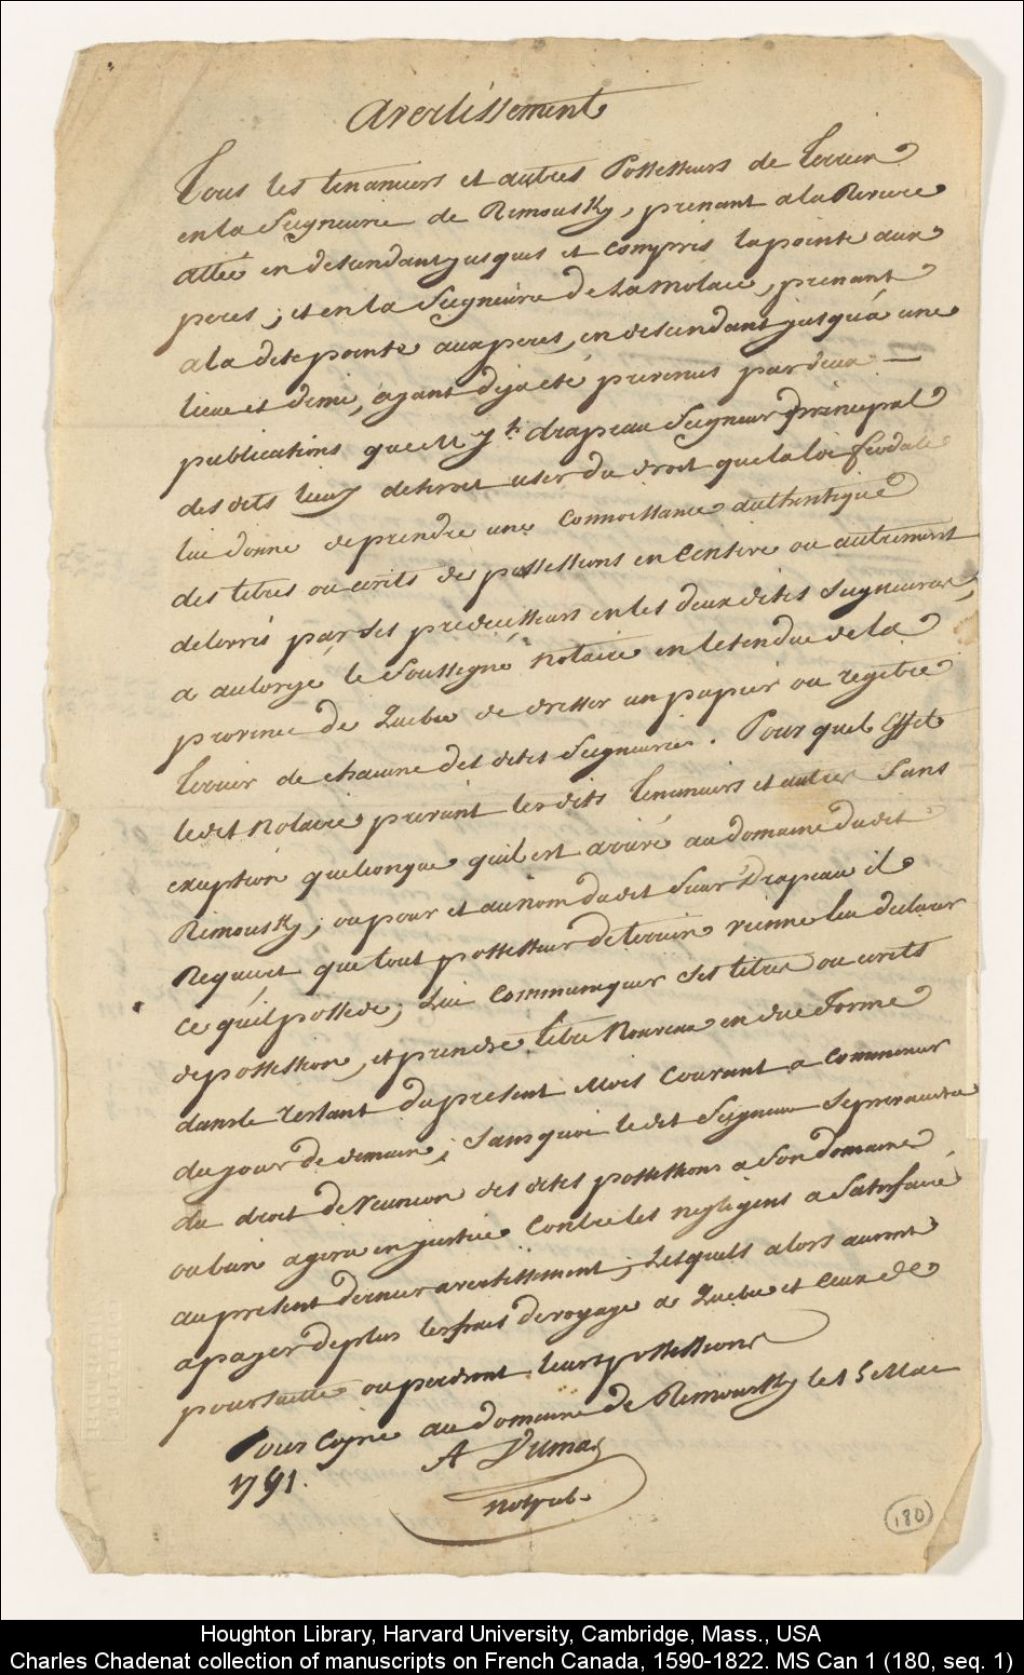 avertissement
Tous les tenanciers et autres Possesseurs de Terrein
en la Seigneurie de Rimousky, prenant a la Riviere
attée en descendant jusques et compris la pointe aux
peres; et en la Seigneurie de Lamolaie, prenant
a la dite pointe aux peres, en descendant jusqu'á une
lieue et demie, ayant deja eté prevenus par deux —
publications que M jh drapeau Seigneur principal
des dits lieux desiroit user du droit que la loi feodale
lui donne de prendre une connoissance authentique
des titres ou ecrits de possessions en Censive ou autrement
delivrés par ses predecesseurs en les deux dites Seigneuries,
a autorisé le Soussigné Notaire en letendue de la
province de Quebec de dresser un papier ou registre
terrier de chacune des dites Seigneuries. Pour quel Effet
ledit Notaire previent les dits Tenanciers et autres Sans
exception quelconque quil est arrivé au domaine dudit
Rimousky; ou pour et au nom dudit Sieur Drapeau il
Requiert que tout possesseur de terrein vienne lui declarer
ce qu'il possede; Lui communiquer ses titres ou ecrits
de possession, et prendre titre Nouveau en due Forme
dans le restant du present Mois Courant a commencer
du jour de demain; Sans quoi le dit Seigneur se prevaudra
du droit de Reunion des dites possessions a Son domaine
ou bien agira en justice Contre les negligens a Satisfaire
au present dernier avertissement; Lesquels alors auront
a payer de plus les frais de voyage a Quebec et Ceux de
poursuitte ou perdront leurs possessions
Pour Copie au domaine de Rimousky le 15 Mai
1791.
A Dumas
Not pub.
180
Houghton Library, Harvard University, Cambridge, Mass., USA
Charles Chadenat collection of manuscripts on French Canada, 1590-1822. MS Can 1 (180, seq. 1)